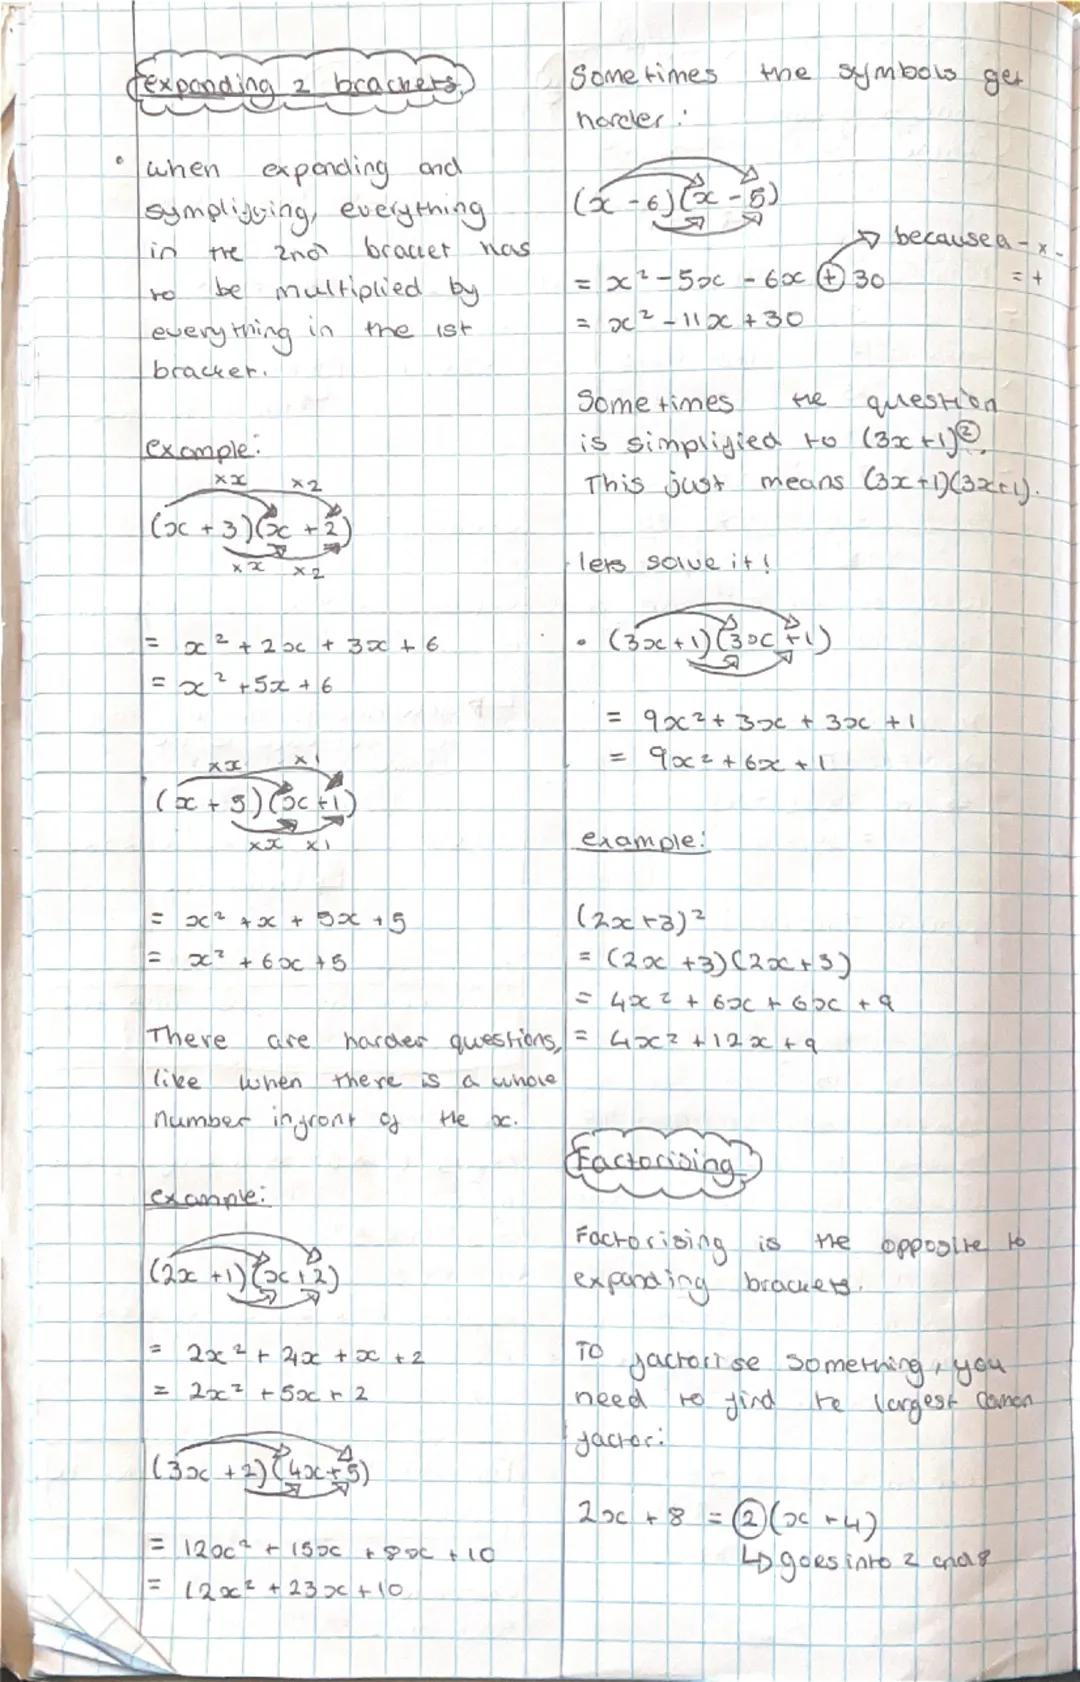 expanding 2 brackets
• when expanding and
symplifying, everything
in the 2nd bracket has
to be multiplied by
everything in the 1st
bracket.
example:
×x ×2
(x + 3)(x + 2)
×x ×2
= x² + 2x + 3x + 6
= x² + 5x + 6
×x ×1
(x + 5)(x + 1)
×x ×1
= x² + x + 5x + 5
= x² + 6x + 5
There are harder questions,
like when there is a whole
number infront of the x.
example:
(2x + 1)(x + 2)
= 2x² + 4x + x + 2
= 2x² + 5x + 2
(3x + 2)(4x + 5)
= 12x² + 15x + 8x + 10
= 12x² + 23x + 10
Sometimes the symbols get
harder:
(x - 6)(x - 5)
→ because a - × -
= x² - 5x - 6x + 30 = +
= x² - 11x + 30
Sometimes the question
is simplified to (3x + 1)²
This just means (3x+1)(3x+1).
lets solve it!
• (3x + 1)(3x + 1)
= 9x² + 3x + 3x + 1
= 9x² + 6x + 1
example:
(2x + 3)²
= (2x + 3)(2x + 3)
= 4x² + 6x + 6x + 9
= 4x² + 12x + 9
Factorising
Factorising is the opposite to
expanding brackets.
To factorise something, you
need to find the largest coman
factor:
2x + 8 = 2(x + 4)
↳ goes into 2 and 8